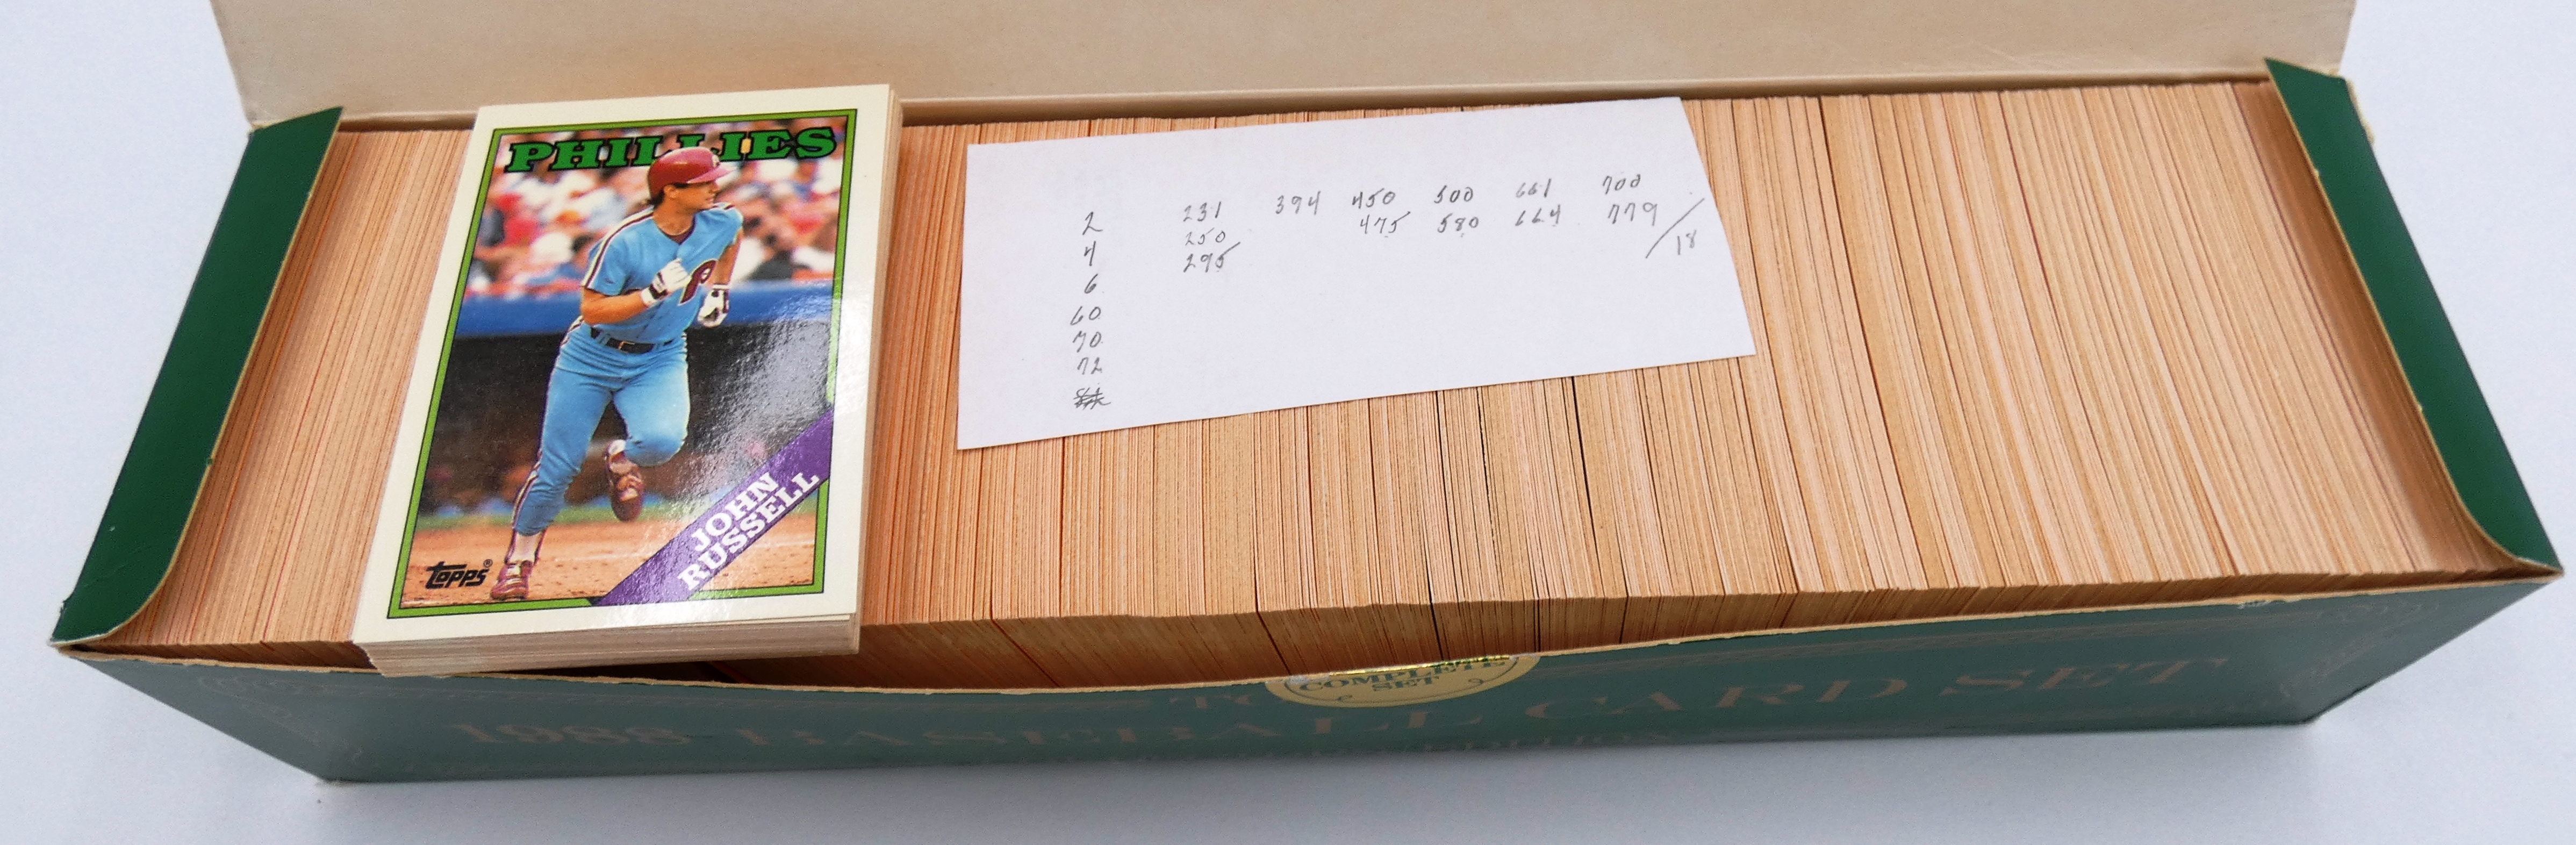 PHILLIES
JOHN
RUSSELL
topps®
2 231 394 450 500 661 700
4 250 475 580 664 779
6 295 /18
60
70
72
COMPLETE
SET
1988 BASEBALL CARD SET
EDITION